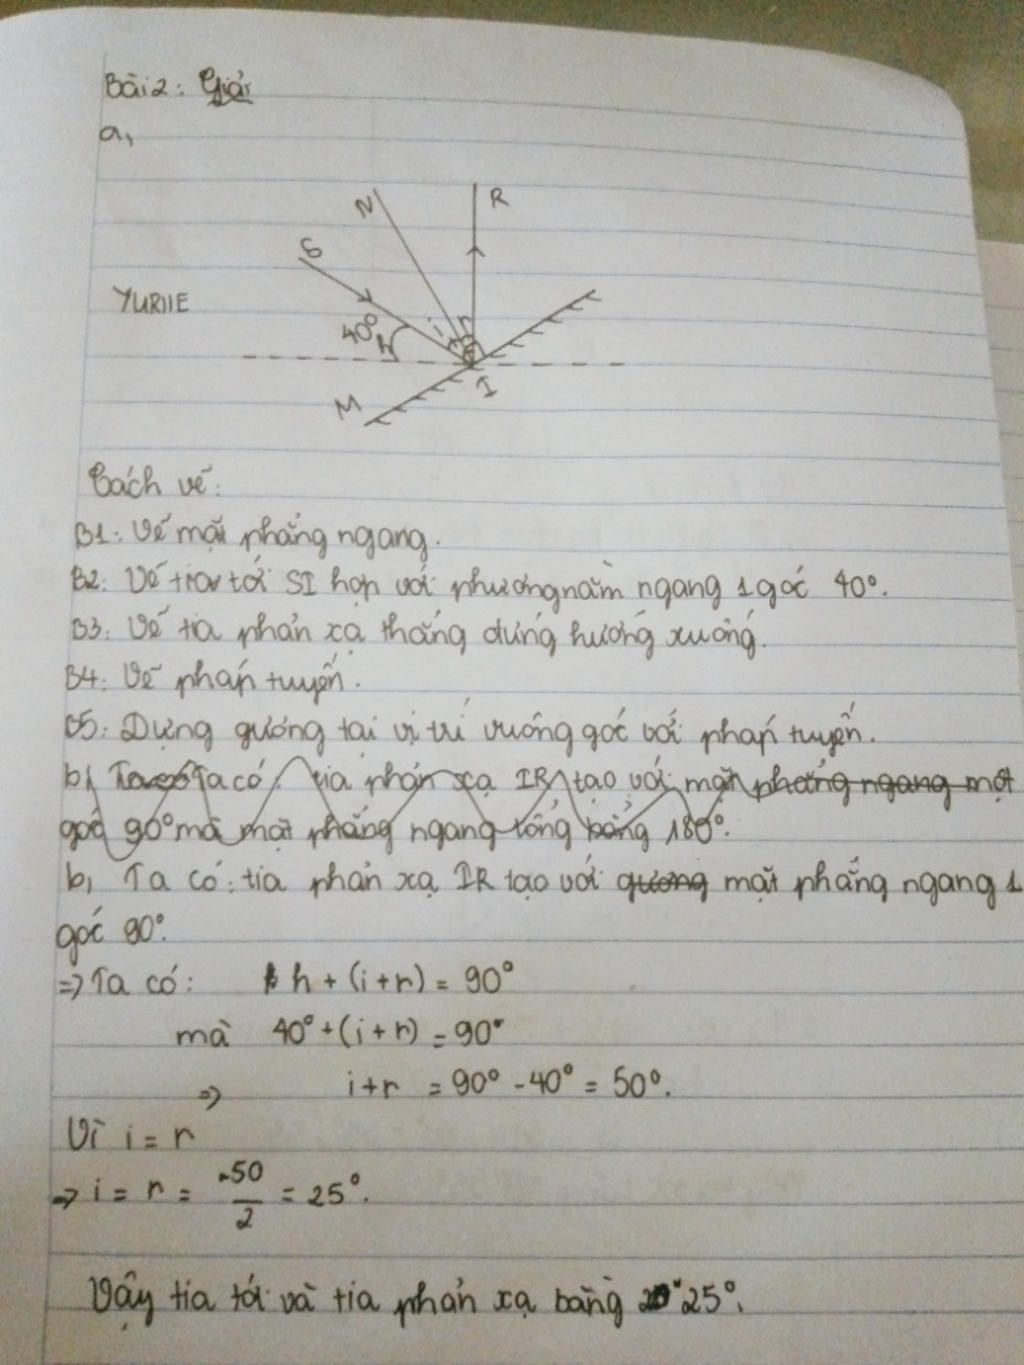 Bài 2: Giải
a,
N
R
S
YURIIE
40°
h
i
r
I
M
Cách vẽ:
B1: Vẽ mặt phẳng ngang.
B2: Vẽ tia tới SI hợp với phương nằm ngang 1 góc 40°.
B3: Vẽ tia phản xạ thẳng đứng hướng xuống.
B4: Vẽ pháp tuyến.
B5: Dựng gương tại vị trí vuông góc với pháp tuyến.
b, Ta có Ta có: tia phản xạ IR tạo với mặt phẳng ngang một
góc 90° mà mặt phẳng ngang tổng bằng 180°.
b, Ta có: tia phản xạ IR tạo với gương mặt phẳng ngang 1
góc 90°.
=> Ta có: h + (i + r) = 90°
mà 40° + (i + r) = 90°
=> i + r = 90° - 40° = 50°.
Vì i = r
=> i = r = 50/2 = 25°.
Vậy tia tới và tia phản xạ bằng 25°.